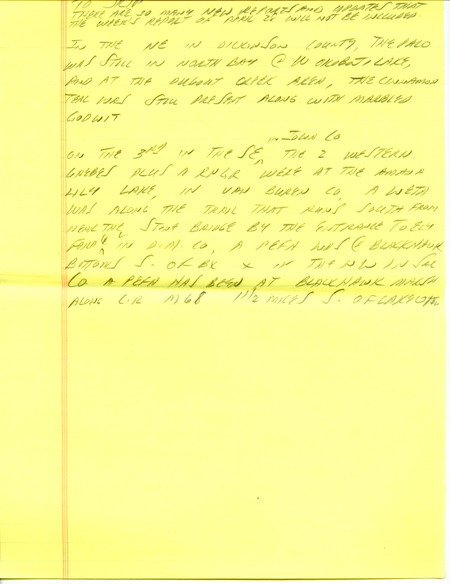 TO SKIP
THERE ARE SO MANY NEW REPORTS AND UPDATES THAT
THE WEEK'S REPORT OF MAR 26 WILL NOT BE INCLUDED.
IN THE NE IN DICKINSON COUNTY, THE PALO
WAS STILL IN NORTH BAY @ W OKOBOJI LAKE,
AND AT THE DUGOUT CREEK AREA, THE CINNAMON
TEAL WAS STILL PRESENT ALONG WITH MARBLED
GODWIT
IN IOWA CO
ON THE 3RD IN THE SE, THE 2 WESTERN
GREBES PLUS A RNGR WERE AT THE AMANA
LILY LAKE, IN VAN BUREN CO, A WEVI
WAS ALONG THE TRAIL THAT RUNS SOUTH FROM
NEAR THE STONE BRIDGE BY THE ENTRANCE TO ELY
FORD & IN D.M. CO, A PEFA WAS @ BLACKHAWK
BOTTOMS S. OF BX & IN THE NW IN SAC
CO A PEFA HAS BEEN AT BLACKHAWK MARSH
ALONG C.R. M68 1 1/2 MILES S. OF LAKEVIEW